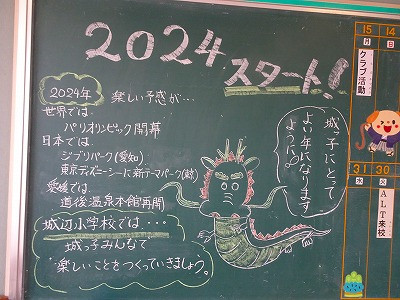 2024
スタート!
2024年
楽しい予感が…
世界では
パリオリンピック開幕
日本では
ジブリパーク(愛知)
東京ディズニーシーに新テーマパーク(敵)
愛媛では
道後温泉本館再開
城辺小学校では…
城っ子みんなで
楽しいことをつくっていきましょう。
城っ子にとって
よい年になります
ように。
15
14
月
日
クラブ活動
31
30
水
火
ALT来校